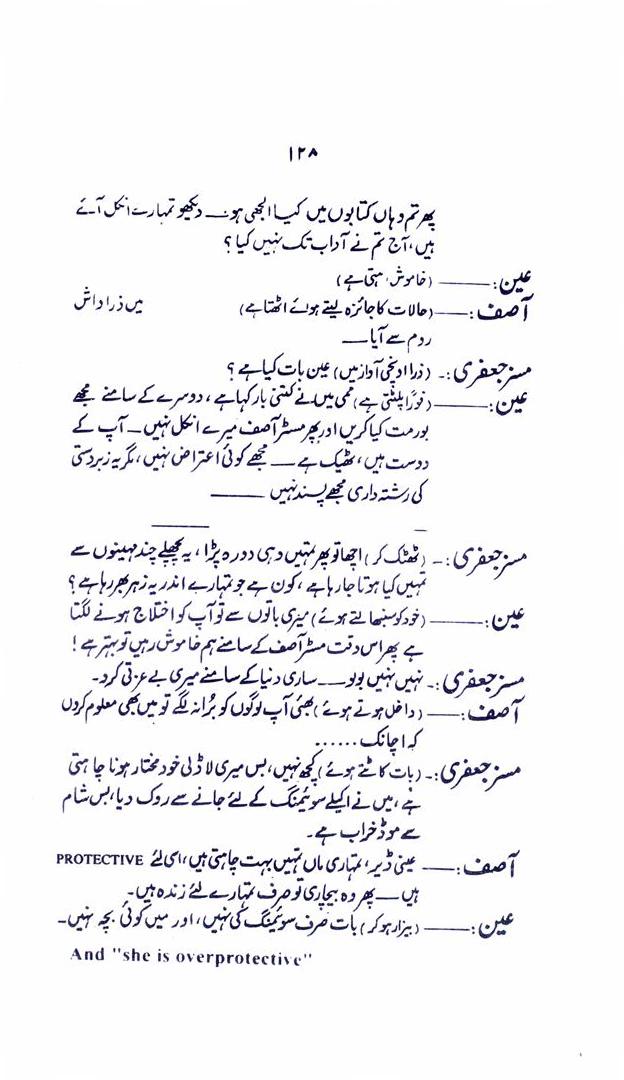 ۱۲۸
پھر تم وہاں کتابوں میں کیا الجھی ہو۔۔۔ دیکھو تمہارے انکل آئے
ہیں، آج تم نے آداب تک نہیں کیا؟
عین:۔——— (خاموش رہتی ہے)
آصف:۔—— (حالات کا جائزہ لیتے ہوئے اٹھتا ہے) میں ذرا واش
روم سے آیا——
مسز جعفری:۔ (ذرا اونچی آواز میں) عین بات کیا ہے؟
عین:۔——— (فوراً پلٹتی ہے) ممی میں نے کتنی بار کہا ہے، دوسرے کے سامنے مجھے
بور مت کیا کریں اور پھر مسٹر آصف میرے انکل نہیں— آپ کے
دوست ہیں، ٹھیک ہے—— مجھے کوئی اعتراض نہیں، مگر یہ زبردستی
کی رشتہ داری مجھے پسند نہیں ———
مسز جعفری:۔— (ٹھٹک کر) اچھا تو پھر تمہیں وہی دورہ پڑا، یہ پچھلے چند مہینوں سے
تمہیں کیا ہوتا جا رہا ہے، کون ہے جو تمہارے اندر یہ زہر بھر رہا ہے؟
عین:۔——— (خود کو سنبھالتے ہوئے) میری باتوں سے تو آپ کو اختلاج ہونے لگتا
ہے پھر اس وقت مسٹر آصف کے سامنے ہم خاموش رہیں تو بہتر ہے!
مسز جعفری:۔ نہیں نہیں بولو—— ساری دنیا کے سامنے میری بے عزتی کرو۔
آصف:۔—— (داخل ہوتے ہوئے) بھئی آپ لوگوں کو برا نہ لگے تو میں بھی معلوم کروں
کہ اچانک......
مسز جعفری:۔ (بات کاٹتے ہوئے) کچھ نہیں، بس میری لاڈلی خود مختار ہونا چاہتی
ہے، میں نے اکیلے سوئیمنگ کے لئے جانے سے روک دیا، بس شام
سے موڈ خراب ہے۔
آصف:۔—— عینی ڈیر، تمہاری ماں تمہیں بہت چاہتی ہیں، اسی لئے PROTECTIVE
ہیں—— پھر وہ بیچاری تو صرف تمہارے لئے زندہ ہیں۔
عین:۔——— (بیزار ہو کر) بات صرف سوئمنگ کی نہیں، اور میں کوئی بچہ نہیں۔
And "she is overprotective"